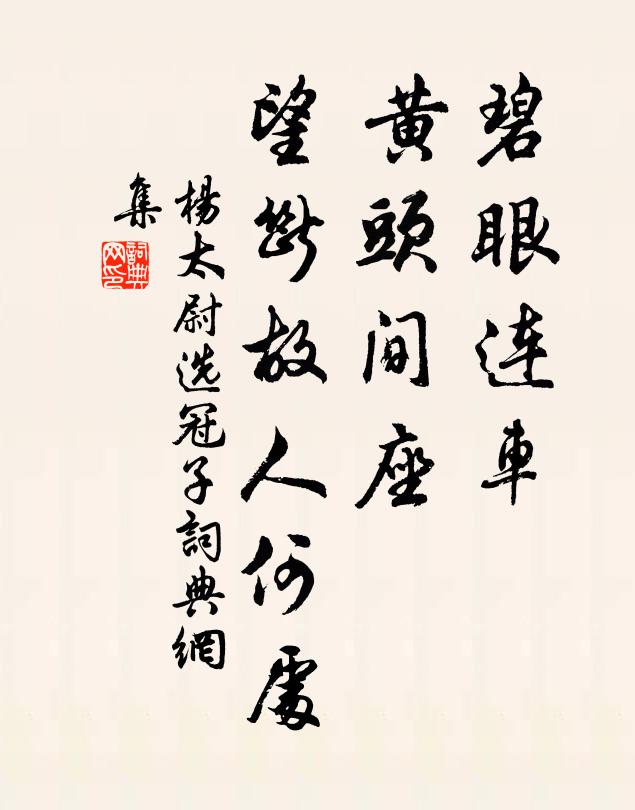 碧眼連車
黄頭間座
望斷故人何處
楊太尉選冠子詞典網
集
詞典網印